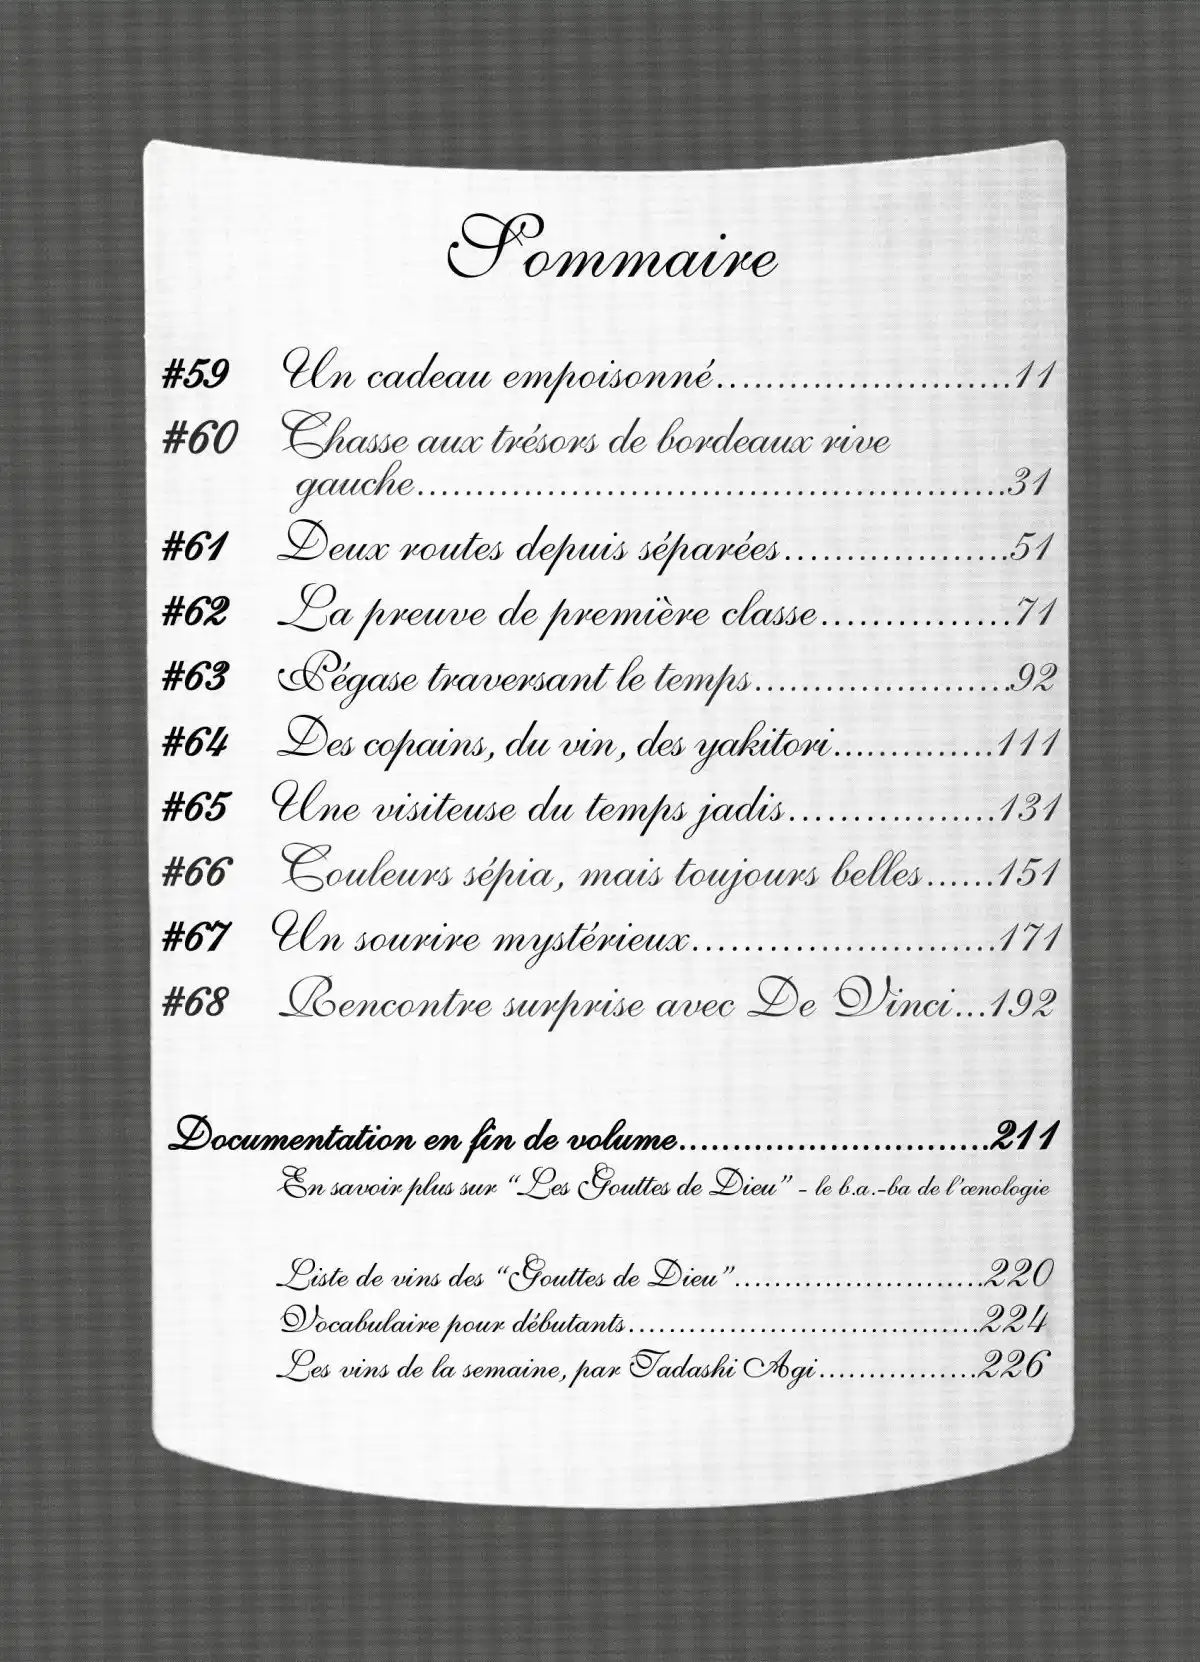 Sommaire
#59 Un cadeau empoisonné.........................11
#60 Chasse aux trésors de bordeaux rive
gauche.................................................31
#61 Deux routes depuis séparées...................51
#62 La preuve de première classe................71
#63 Pégase traversant le temps......................92
#64 Des copains, du vin, des yakitori..............111
#65 Une visiteuse du temps jadis..................131
#66 Couleurs sépia, mais toujours belles......151
#67 Un sourire mystérieux..........................171
#68 Rencontre surprise avec De Vinci...192
Documentation en fin de volume............................211
En savoir plus sur “Les Gouttes de Dieu” - le b.a.-ba de l'œnologie
Liste de vins des “Gouttes de Dieu”..........................220
Vocabulaire pour débutants....................................224
Les vins de la semaine, par Tadashi Agi.................226